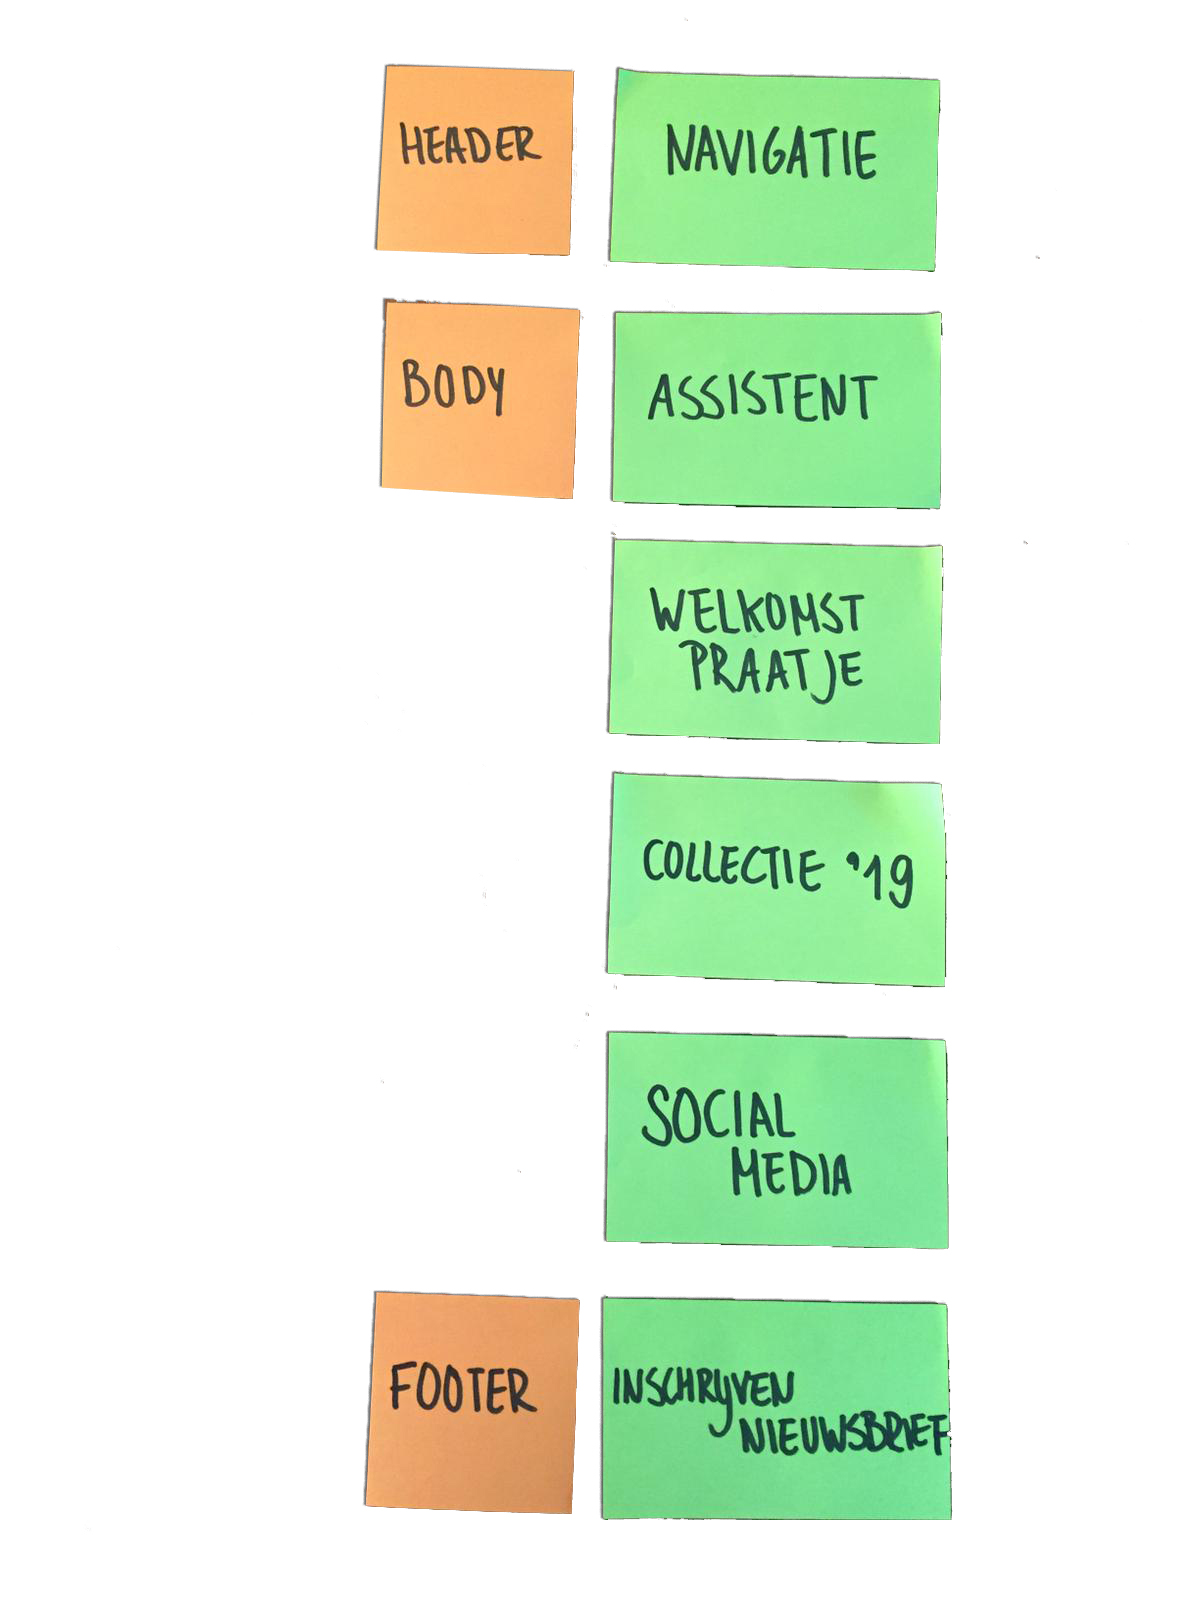 HEADER
NAVIGATIE
BODY
ASSISTENT
WELKOMST
PRAATJE
COLLECTIE '19
SOCIAL
MEDIA
FOOTER
INSCHRIJVEN
NIEUWSBRIEF